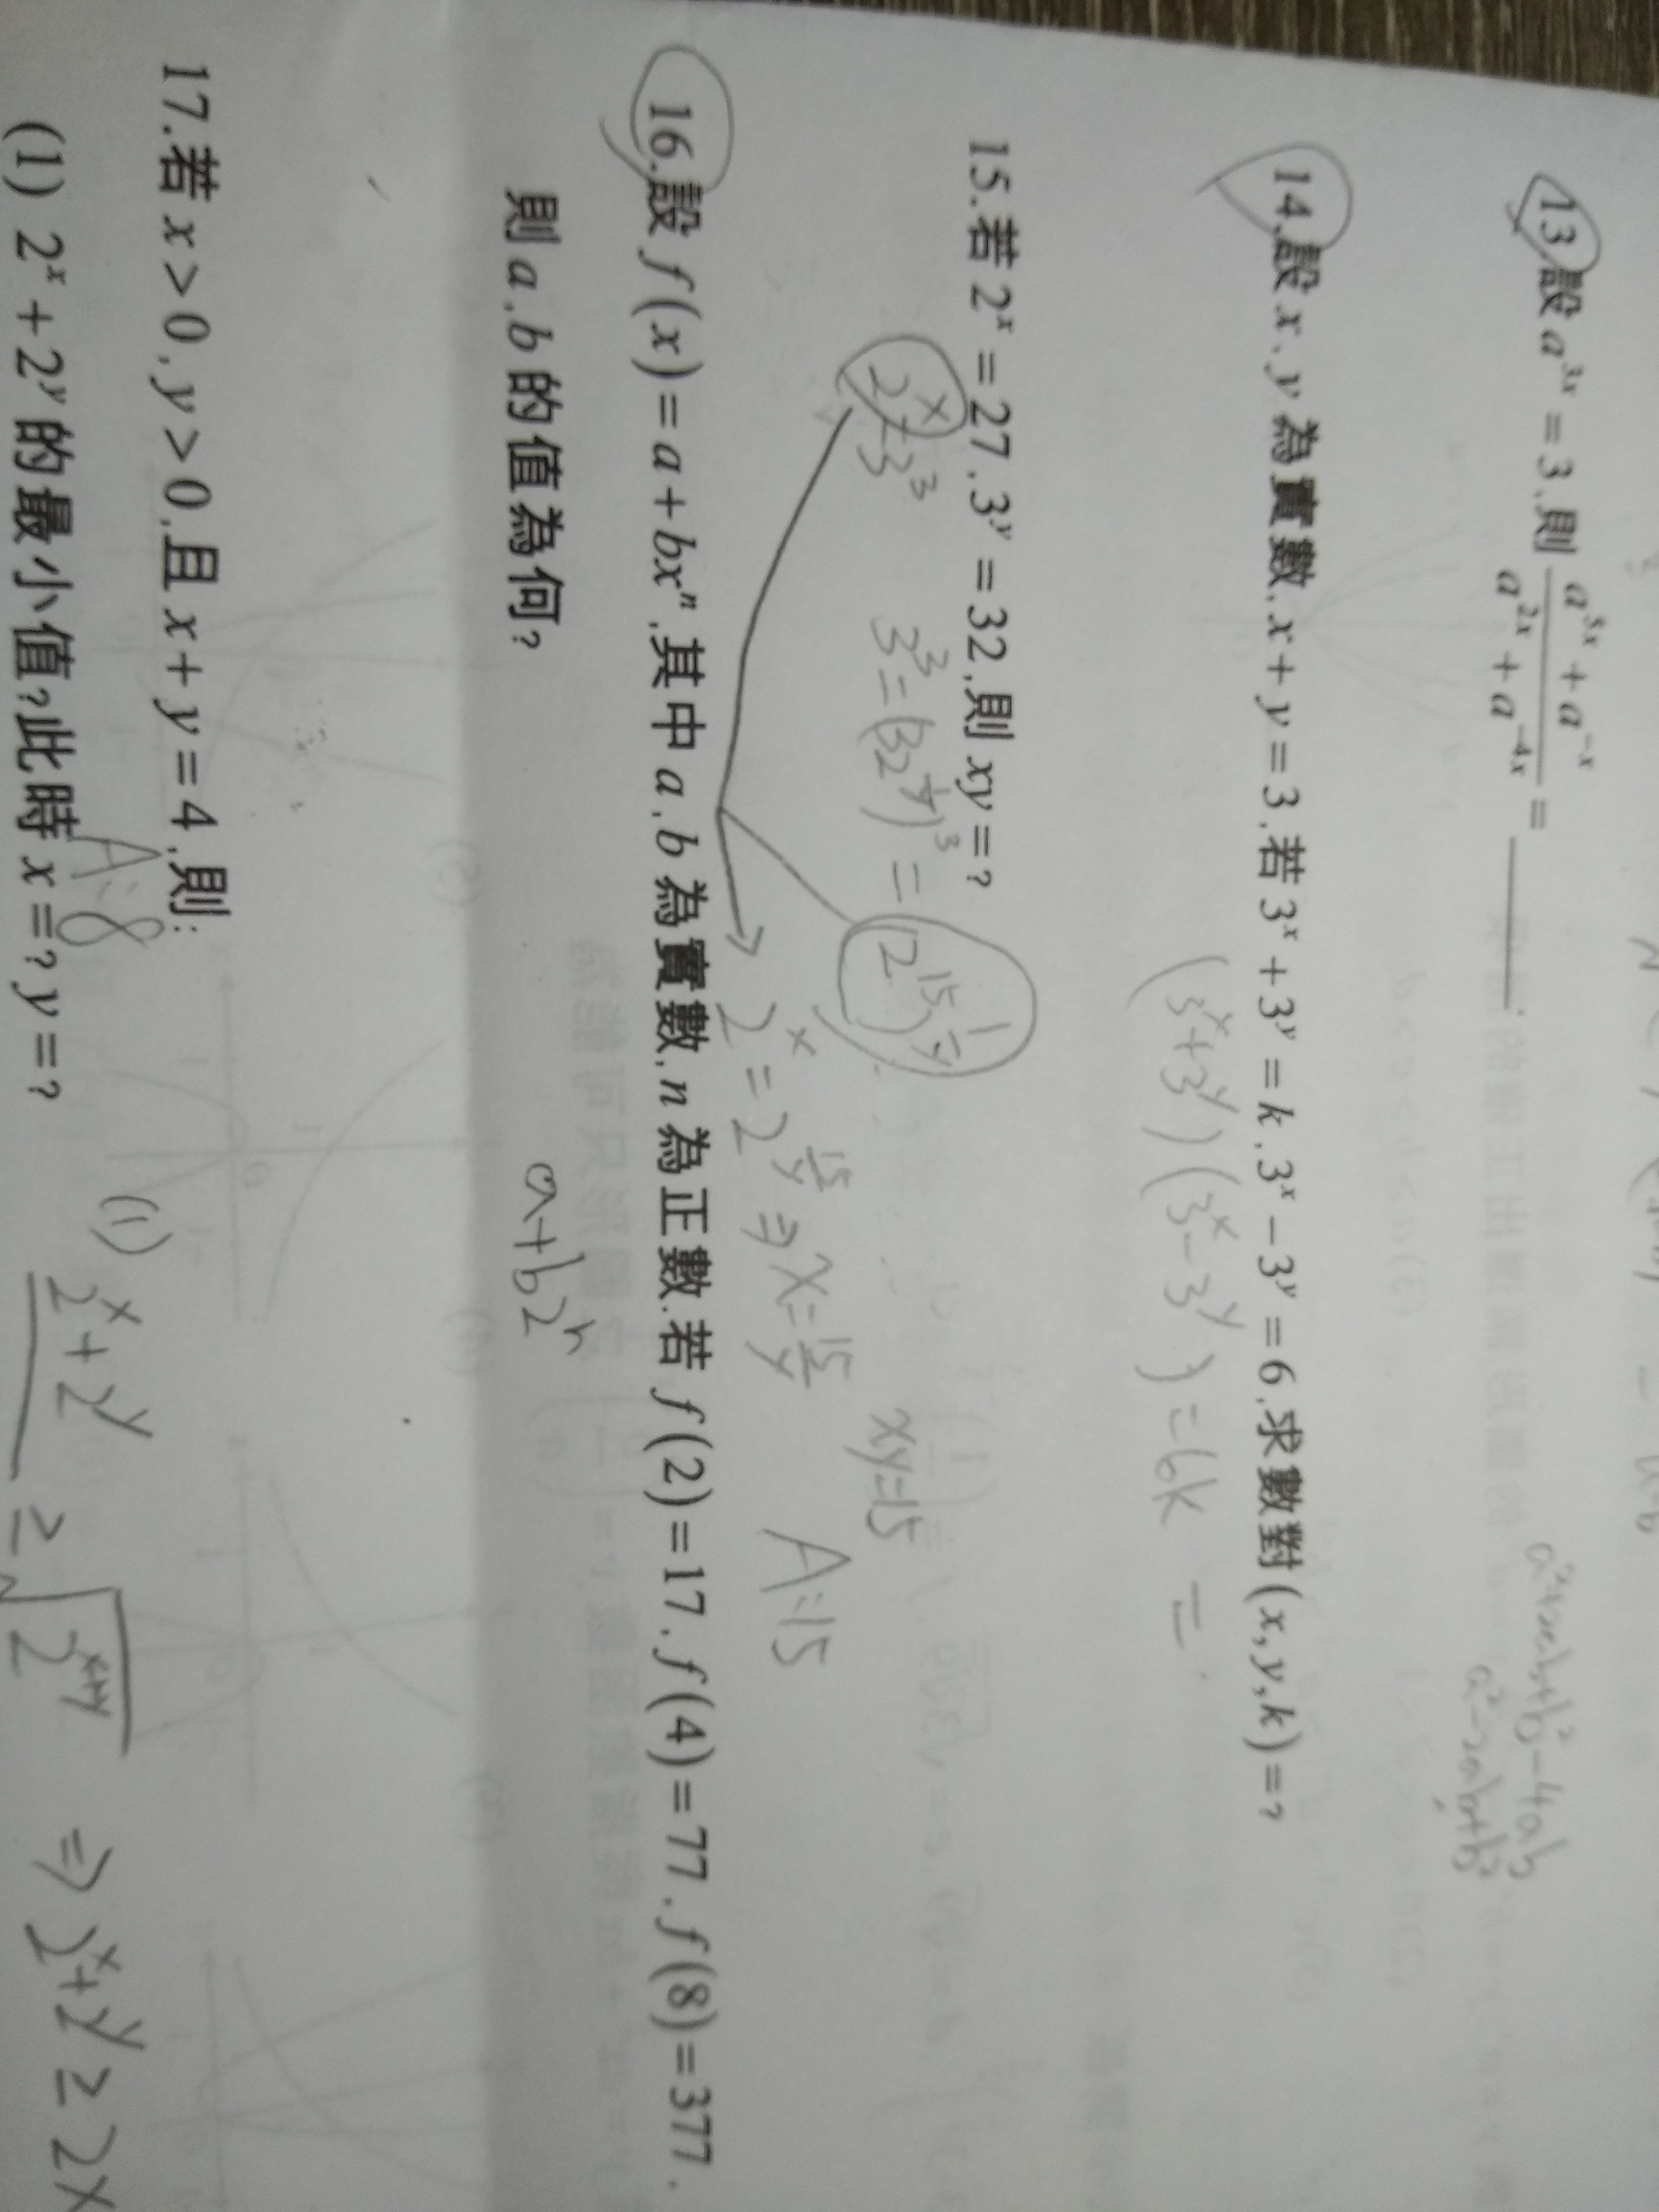 13.設 a³ˣ = 3,則 (a⁵ˣ + a⁻ˣ)/(a²ˣ + a⁻⁴ˣ) = ______.
a²+2ab+b²-4ab
a²-2ab+b²
14.設 x、y 為實數, x + y = 3,若 3ˣ + 3ʸ = k, 3ˣ − 3ʸ = 6,求數對 (x, y, k) = ?
(3ˣ+3ʸ)(3ˣ-3ʸ)=6k =
15.若 2ˣ = 27, 3ʸ = 32,則 xy = ?
2ˣ=3³ 3³=(32^(1/y))³= 2^(15·1/y) xy=15
2ˣ=2^(15/y) ⇒ x=15/y A:15
16.設 f(x) = a + bxⁿ,其中 a, b 為實數, n 為正數.若 f(2) = 17, f(4) = 77, f(8) = 377,
則 a, b 的值為何?
a+b2ⁿ
17.若 x > 0, y > 0,且 x + y = 4,則:
A:8
(1) 2ˣ + 2ʸ 的最小值?此時 x = ? y = ?
(1) (2ˣ+2ʸ)/2 ≥ √(2ˣ⁺ʸ) ⇒ 2ˣ+2ʸ ≥ 2×